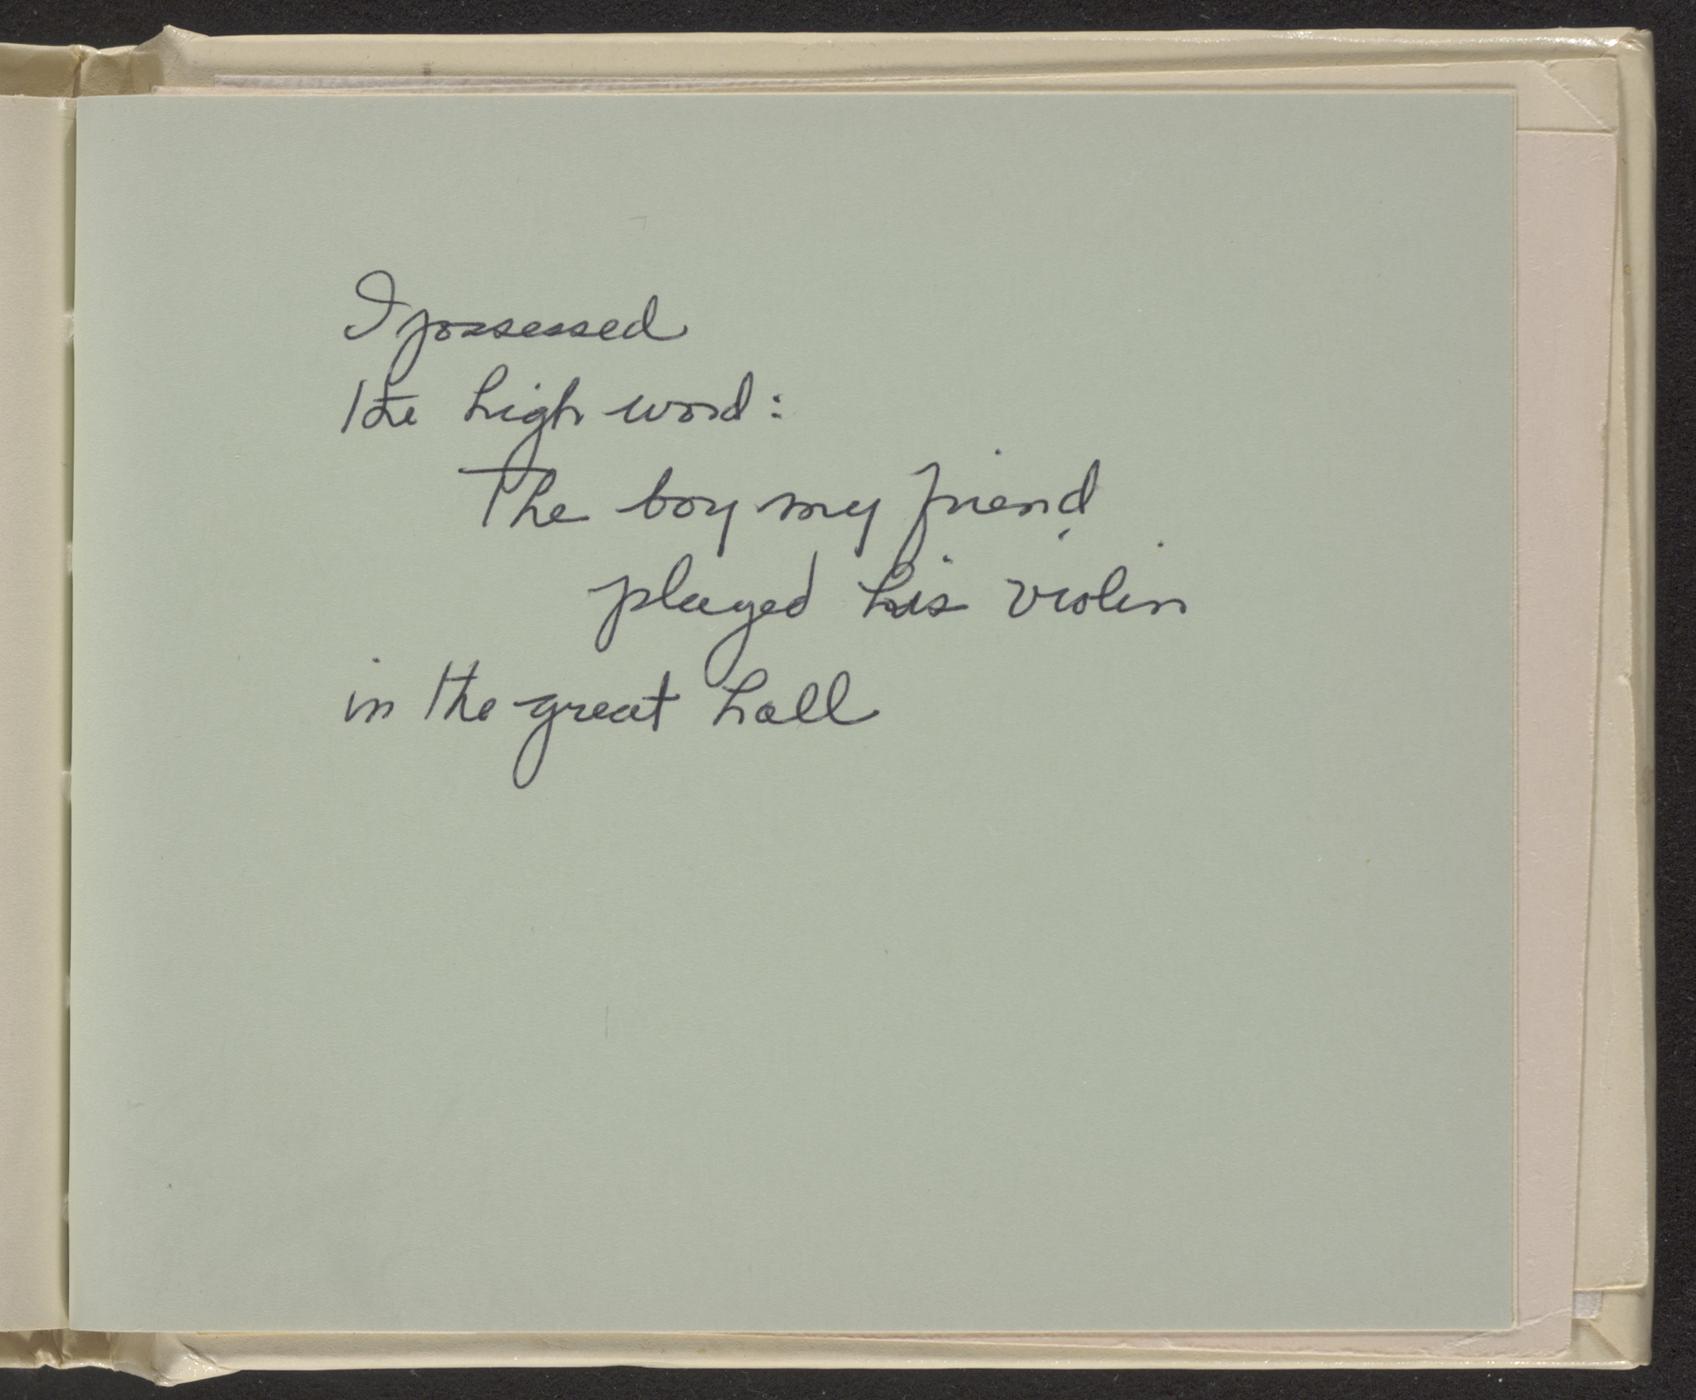 I possessed
the high word:
The boy my friend
played his violin
in the great hall